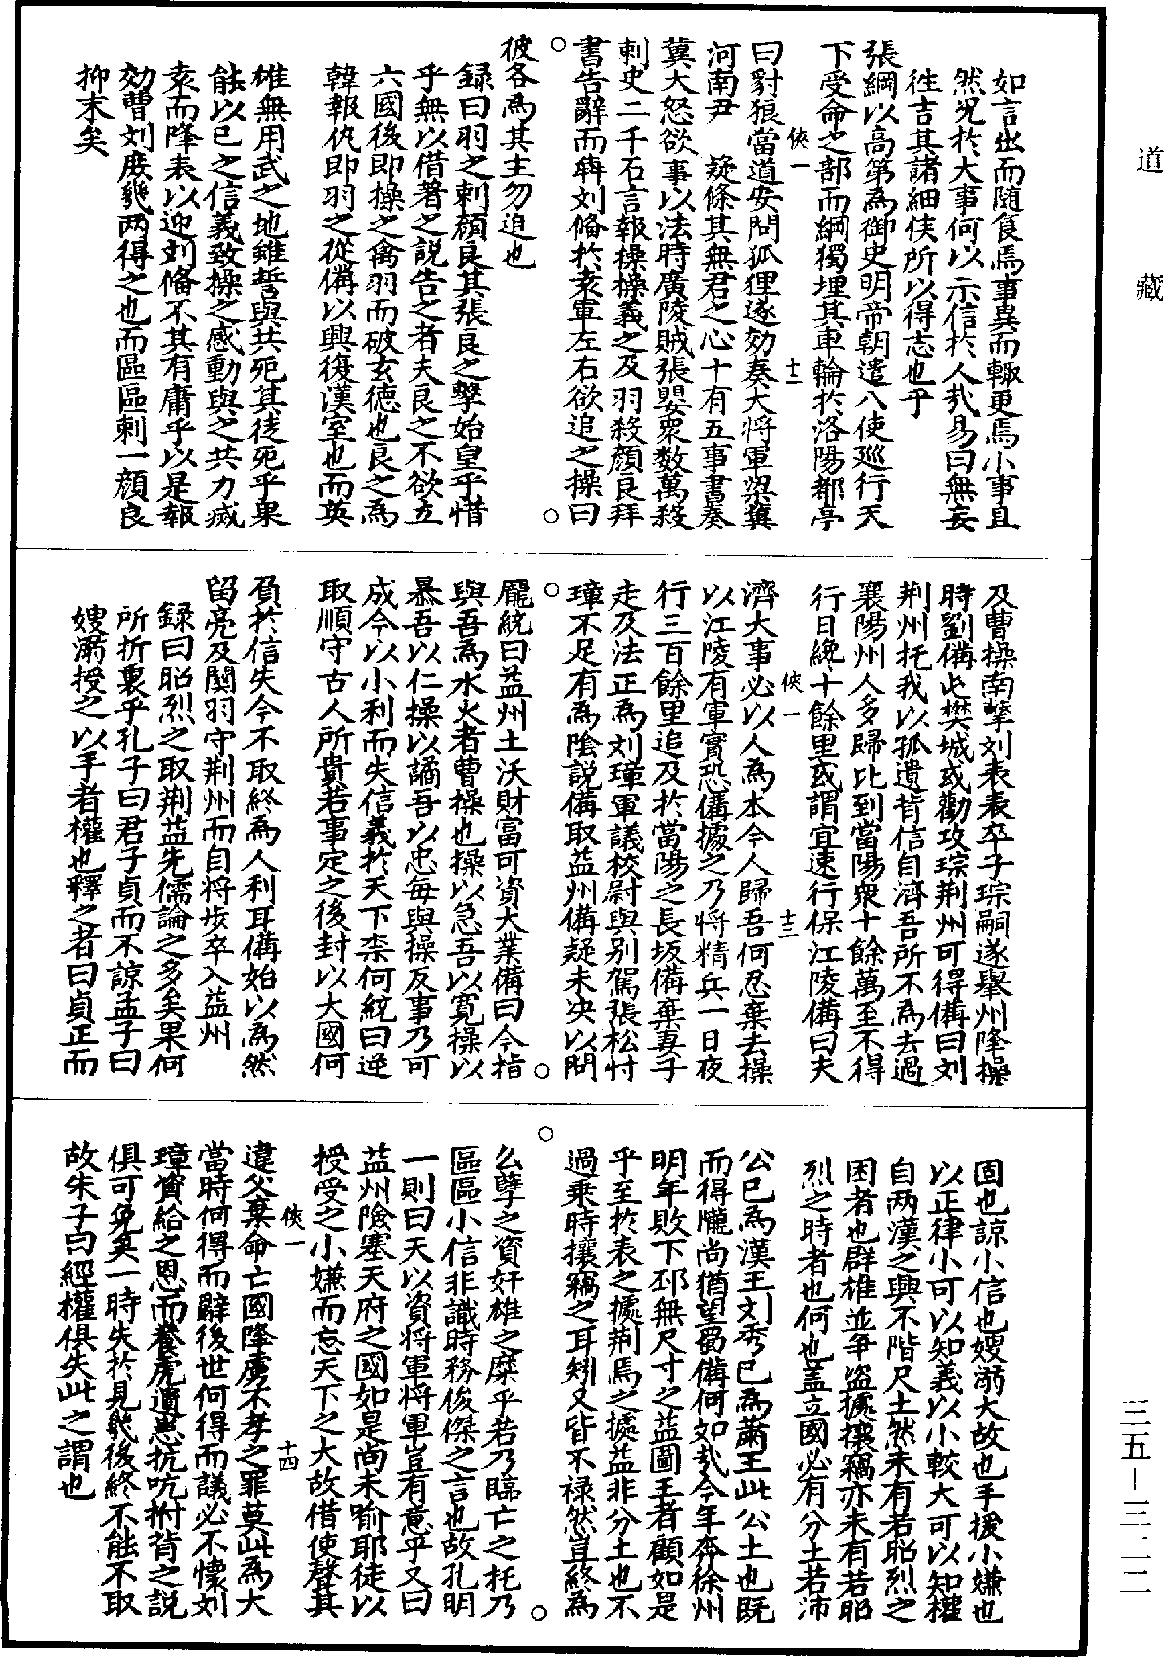 道藏
如言出而随食焉事異而輙更焉小事且
然况於大事何以示信於人㢤易曰無妄
徃吉其諸細侠所以得志也乎
張綱以高第為御史明帝朝遣八使廵行天
下受命之部而綱獨埋其車輪於洛陽都亭
侠一
十二
曰豺狼當道安問狐狸遂劾奏大将軍梁冀
河南尹 疑條其無君之心十有五事書奏
冀大怒欲事以法時廣陵賊張嬰衆数萬殺
刺史二千石言報操操義之及羽殺顔良拜
書告辭而犇刘俻於袁軍左右欲追之操曰
○
○
彼各為其主勿追也
録曰羽之刺顔良其張良之擊始皇乎惜
乎無以借著之説告之者夫良之不欲立
六國後即操之禽羽而破玄徳也良之為
韓報仇即羽之從俻以興復漢室也而英
雄無用武之地雖誓與共死其徒死乎果
能以已之信義致操之感動與之共力㓕
袁而降表以迎刘俻不其有庸乎以是報
効曹刘庻㡬两得之也而區區刺一顔良
抑末矣
及曹操南擊刘表表卒子琮嗣遂舉州降操
時劉俻屯樊城或勸攻琮荆州可得俻曰刘
荆州托我以孤遺背信自濟吾所不為去過
襄陽州人多歸比到當陽衆十餘萬至不得
行日綫十餘里或謂宜速行保江陵俻曰夫
侠一
十三
濟大事必以人為本今人歸吾何忍棄去操
以江陵有軍實恐俻據之乃将精兵一日夜
行三百餘里追及於當陽之長坂俻棄妻子
走及法正為刘璋軍議校尉與别駕張松忖
璋不足有為陰説俻取益州俻疑未决以問
○
○
龎統曰益州土沃財富可資大業俻曰今指
與吾為水火者曹操也操以急吾以寛操以
暴吾以仁操以譎吾以忠每與操反事乃可
成今以小利而失信義於天下柰何統曰逆
取順守古人所貴若事定之後封以大國何
負於信失今不取終為人利耳俻始以為然
留亮及關羽守荆州而自将步卒入益州
録曰昭烈之取荆益先儒論之多矣果何
所折裏乎孔子曰君子貞而不諒孟子曰
嫂溺授之以手者權也釋之者曰貞正而
固也諒小信也嫂溺大故也手援小嫌也
以正律小可以知義以小較大可以知權
自两漢之興不階尺土然未有若昭烈之
困者也群雄並爭盗據攘竊亦未有若昭
烈之時者也何也盖立國必有分土若沛
公已為漢王刘秀已為蕭王此公土也既
而得隴尚猶望蜀俻何如㢤今年奔徐州
明年敗下邳無尺寸之益圖王者顧如是
乎至於表之據荆焉之據益非分土也不
過乗時攘竊之耳矧又皆不禄然豈終為
○
○
么孽之資奸雄之糜乎若乃臨亡之托乃
區區小信非識時務俊傑之言也故孔明
一則曰天以資将軍将軍豈有意乎又曰
益州險塞天府之國如是尚未喻耶徒以
授受之小嫌而忘天下之大故借使聲其
侠一
十四
違父棄命亡國降虜不孝之罪莫此為大
當時何得而辭後世何得而議必不懷刘
璋資給之恩而養虎遺患抗吭拊背之説
俱可免矣一時失於見㡬後終不能不取
故朱子曰經權俱失此之謂也
三五—三一二